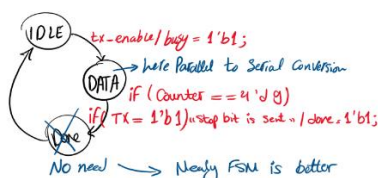 IDLE
tx_enable/busy = 1'b1;
DATA
here Parallel to Serial Conversion
if (Counter == 4'd9)
Done
if (TX = 1'b1) "stop bit is sent" / done = 1'b1;
No need → Mealy FSM is better